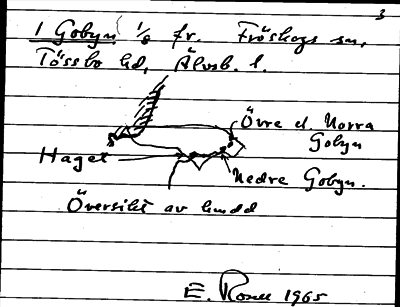 3
1 Gobyn 1/8 fr. Fröskogs sn,
Tössbo hd, Älvsb. l.
Övre el. Norra
Gobyn
Haget
Nedre Gobyn.
Översikt av
E. 1965